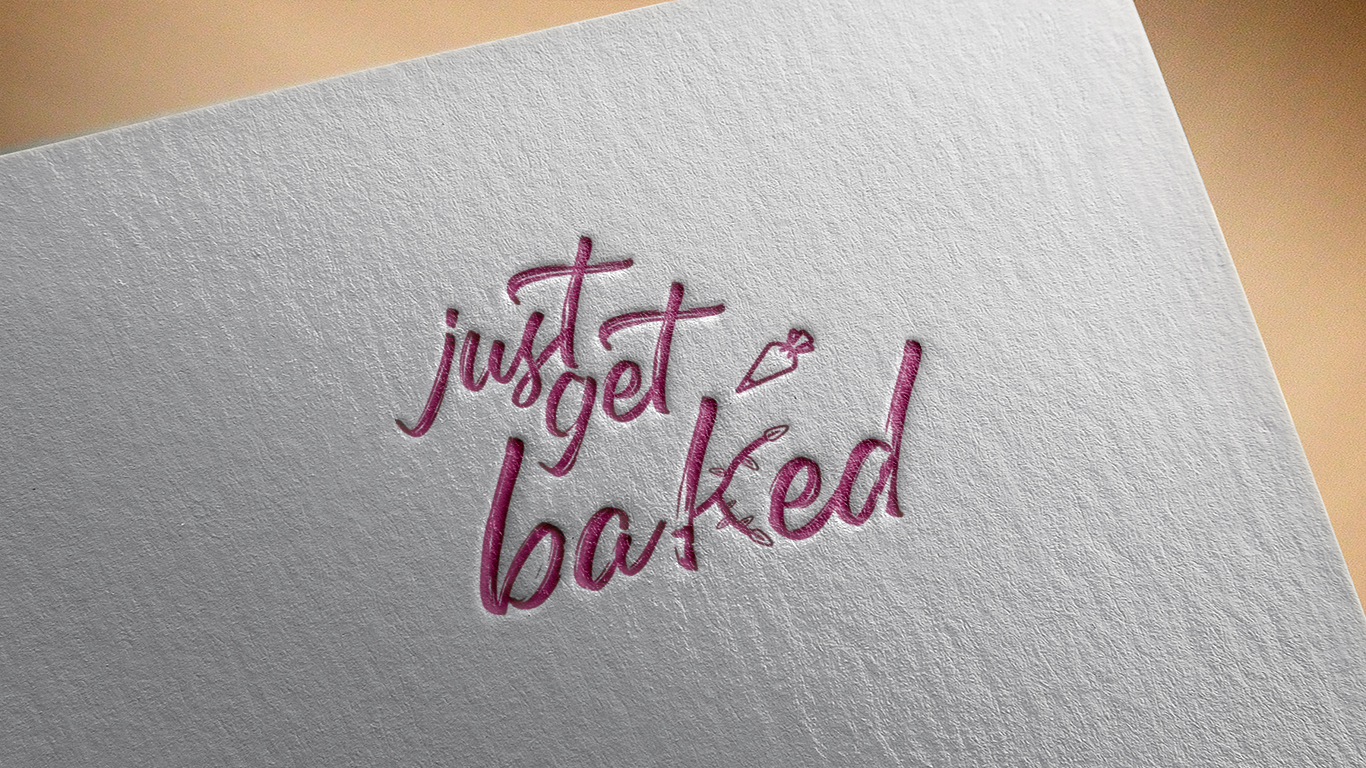 just
get
baked